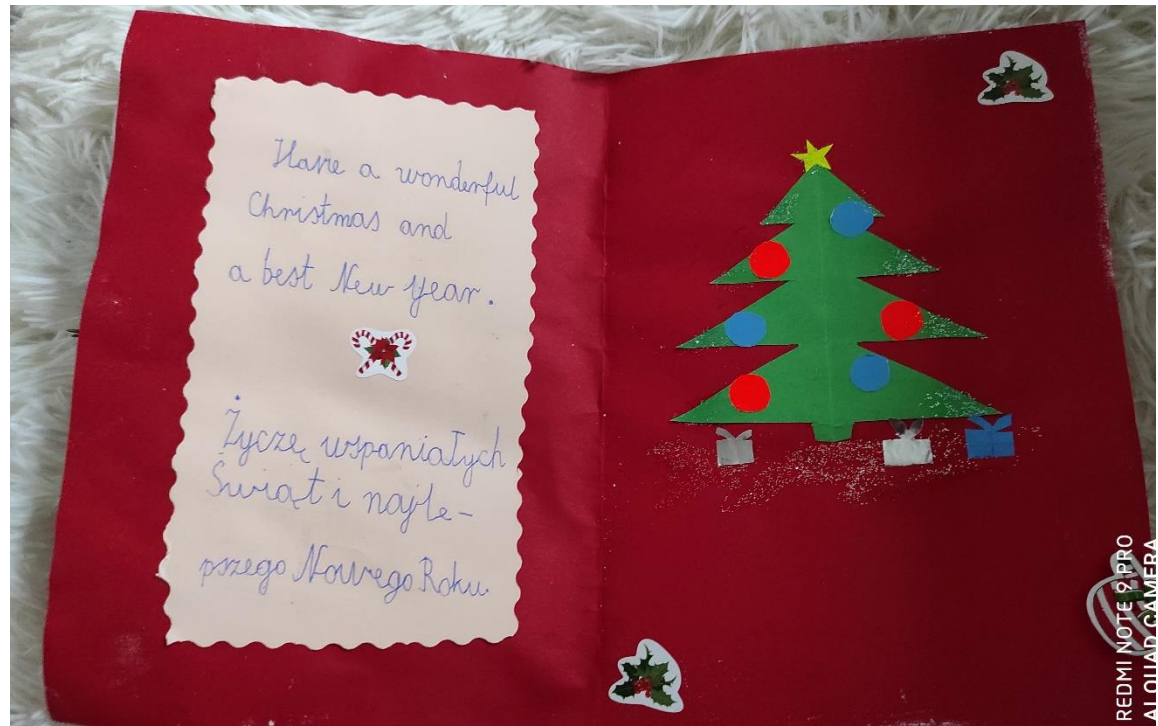 Have a wonderful
Christmas and
a best New Year.
Życzę wspaniałych
Świąt i najle-
pszego Nowego Roku.
REDMI NOTE 9 PRO
AI QUAD CAMERA